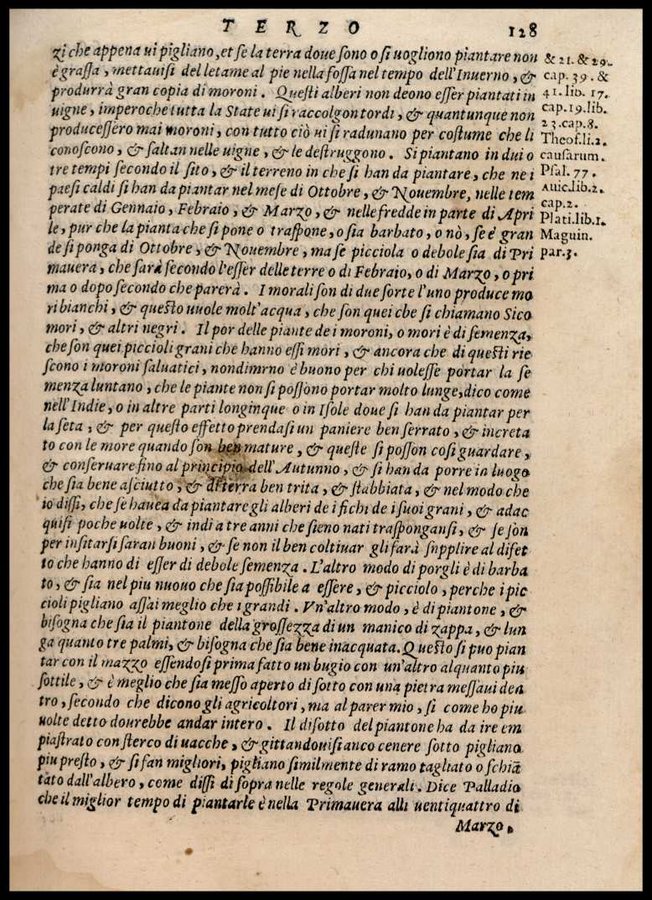 TERZO 128
zi che appena ui pigliano, et se la terra doue sono o si uogliono piantare non
è grassa, mettauisi del letame al pie nella fossa nel tempo dell'Inuerno, &
produrrà gran copia di moroni. Questi alberi non deono esser piantati in
uigne, imperoche tutta la State ui si raccolgon tordi, & quantunque non
producessero mai moroni, con tutto ciò ui si radunano per costume che li
conoscono, & saltan nelle uigne, & le destruggono. Si piantano in dui o
tre tempi secondo il sito, & il terreno in che si han da piantare, che ne i
paesi caldi si han da piantar nel mese di Ottobre, & Nouembre, nelle tem
perate di Gennaio, Febraio, & Marzo, & nelle fredde in parte di Apri
le, pur che la pianta che si pone o traspone, o sia barbato, o nò, se è gran
de si ponga di Ottobre, & Nouembre, ma se picciola o debole sia di Pri
mauera, che sarà secondo l'esser delle terre o di Febraio, o di Marzo, o pri
ma o dopo secondo che parerà. I morali son di due sorte l'uno produce mo
ri bianchi, & questo uuole molt'acqua, che son quei che si chiamano Sico
mori, & altri negri. Il por delle piante de i moroni, o mori è di semenza,
che son quei piccioli grani che hanno essi mori, & ancora che di questi rie
scono i moroni saluatici, nondimrno è buono per chi uolesse portar la se
menza luntano, che le piante non si possono portar molto lunge, dico come
nell'Indie, o in altre parti longinque o in Isole doue si han da piantar per
la seta, & per questo effetto prendasi un paniere ben serrato, & increta
to con le more quando son ben mature, & queste si posson cosi guardare,
& conseruare fino al principio dell'Autunno, & si han da porre in luogo
che sia bene asciutto, & di terra ben trita, & stabbiata, & nel modo che
io dissi, che se hauea da piantare gli alberi de i fichi de i suoi grani, & adac
quisi poche uolte, & indi a tre anni che sieno nati traspongansi, & se son
per insitarsi saran buoni, & se non il ben coltiuar gli farà supplire al difet
to che hanno di esser di debole semenza. L'altro modo di porgli è di barba
to, & sia nel piu nuouo che sia possibile a essere, & picciolo, perche i pic
cioli pigliano assai meglio che i grandi. Vn'altro modo, è di piantone, &
bisogna che sia il piantone della grossezza di un manico di zappa, & lun
ga quanto tre palmi, & bisogna che sia bene inacquata. Questo si puo pian
tar con il mazzo essendosi prima fatto un bugio con un'altro alquanto piu
sottile, & è meglio che sia messo aperto di sotto con una pietra messaui den
tro, secondo che dicono gli agricoltori, ma al parer mio, si come ho piu
uolte detto dourebbe andar intero. Il disotto del piantone ha da ire em
piastrato con sterco di uacche, & gittandouisi anco cenere sotto pigliano
piu presto, & si fan migliori, pigliano similmente di ramo tagliato o schia
tato dall'albero, come dissi di sopra nelle regole generali. Dice Palladio
che il miglior tempo di piantarle è nella Primauera alli uentiquattro di
Marzo.
& 21. & 29.
cap. 39. &
41. lib. 17.
cap. 19. lib.
23. cap. 8.
Theof. li. 2.
causarum.
Psal. 77.
Auic. lib. 2.
cap. 2.
Plati. lib. 1.
Maguin.
par. 3.